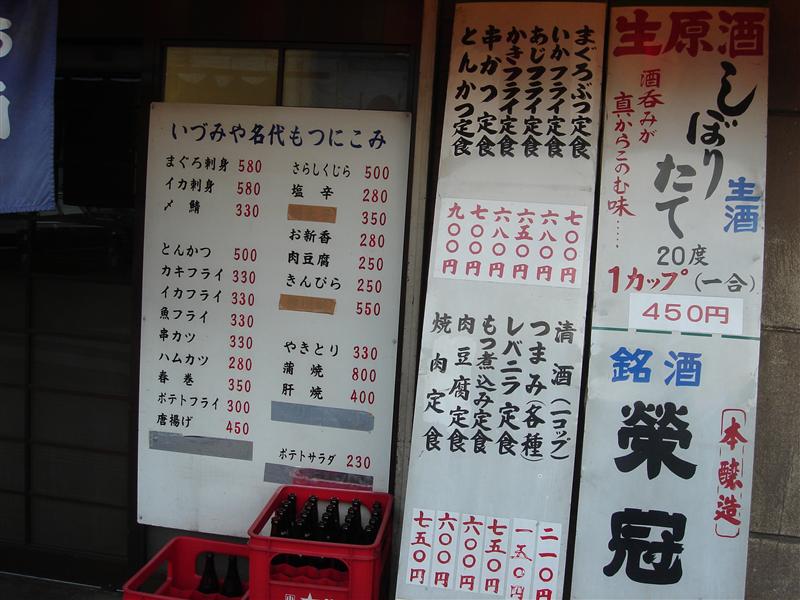 いづみや名代もつにこみ
まぐろ刺身 580
イカ刺身 580
〆鯖 330
とんかつ 500
カキフライ 330
イカフライ 330
魚フライ 330
串カツ 330
ハムカツ 280
春巻 350
ポテトフライ 300
唐揚げ 450
さらしくじら 500
塩辛 280
350
お新香 280
肉豆腐 250
きんぴら 250
550
やきとり 330
蒲焼 800
肝焼 400
ポテトサラダ 230
まぐろぶつ定食
いかフライ定食
あじフライ定食
かきフライ定食
串かつ定食
とんかつ定食
七〇〇円
六八〇円
六五〇円
六八〇円
七〇〇円
九〇〇円
清酒(一コップ)
つまみ(各種)
レバニラ定食
もつ煮込み定食
肉豆腐定食
焼肉定食
二一〇円
一五〇円
七五〇円
六〇〇円
六〇〇円
七五〇円
生原酒
しぼりたて
生酒
酒呑みが
真からこのむ味……
20度
1カップ(一合)
450円
銘酒
榮冠
本醸造